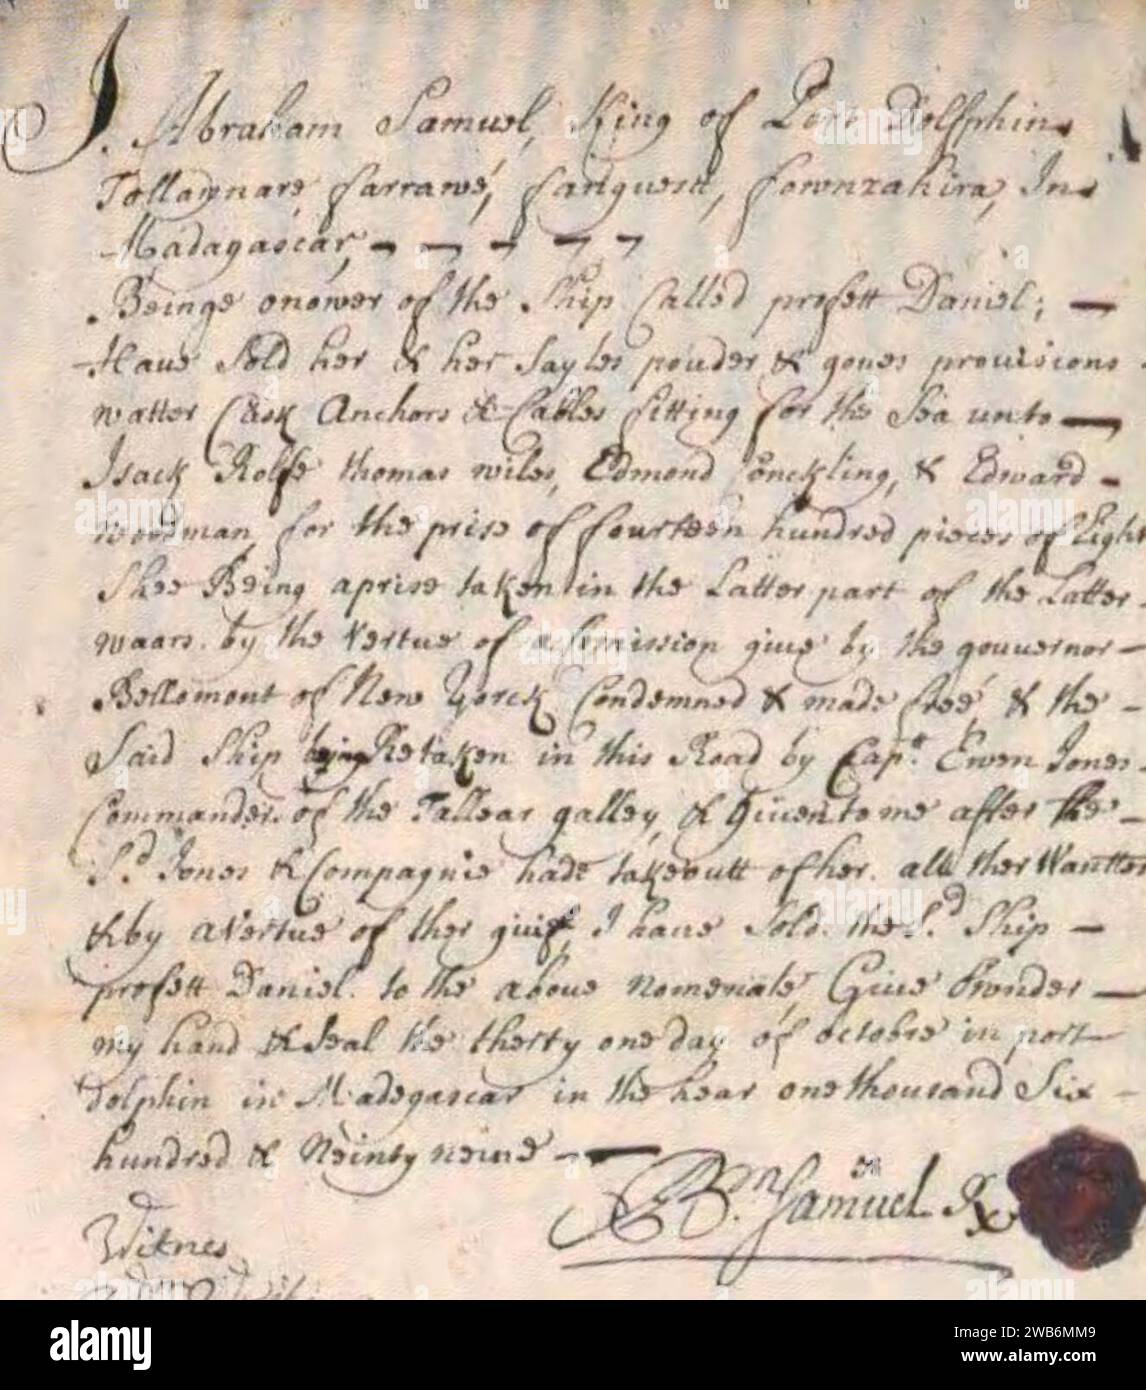 I. Abraham Samuel, King of Port Dolfphin
Tollawnare, farrawé, fanquest, fownzahira, In
Madagascar,
Beinge onower of the Ship Called profett Daniel;
Have Sold her & her Sayles pouder & gones provisions
watter Cask Anchors & Cables fitting for the Sea unto
Isack Rolfe thomas wiles, Edmond Conckling, & Edward
woodman, for the prise of fourteen hundred pieces of Eight
Shee Being aprise taken in the Latter part of the Latter
waars. by the vertue of a Comission give by the gouvernor
Bellomont of New Yorck Condemned & made free, & the
Said Ship being Retaken in this Road by Capt. Ewen Jones
Commander. of the Tallear galley, & Giventome after the
Sd. Jones & Compagnie hade takeoutt of her. all ther Wantter
& by avertue of ther guift, I have Sold. the Sd. Ship
profett Daniel. to the above nomenate, Give ownder
my hand & Seal the therty one day of octobre in port
dolphin in Madegascar in the hear one thousand Six
hundred & Neinty neine
ABm. Samuel Rx
Witnes
alamy
Image ID: 2WB6MM9
www.alamy.com